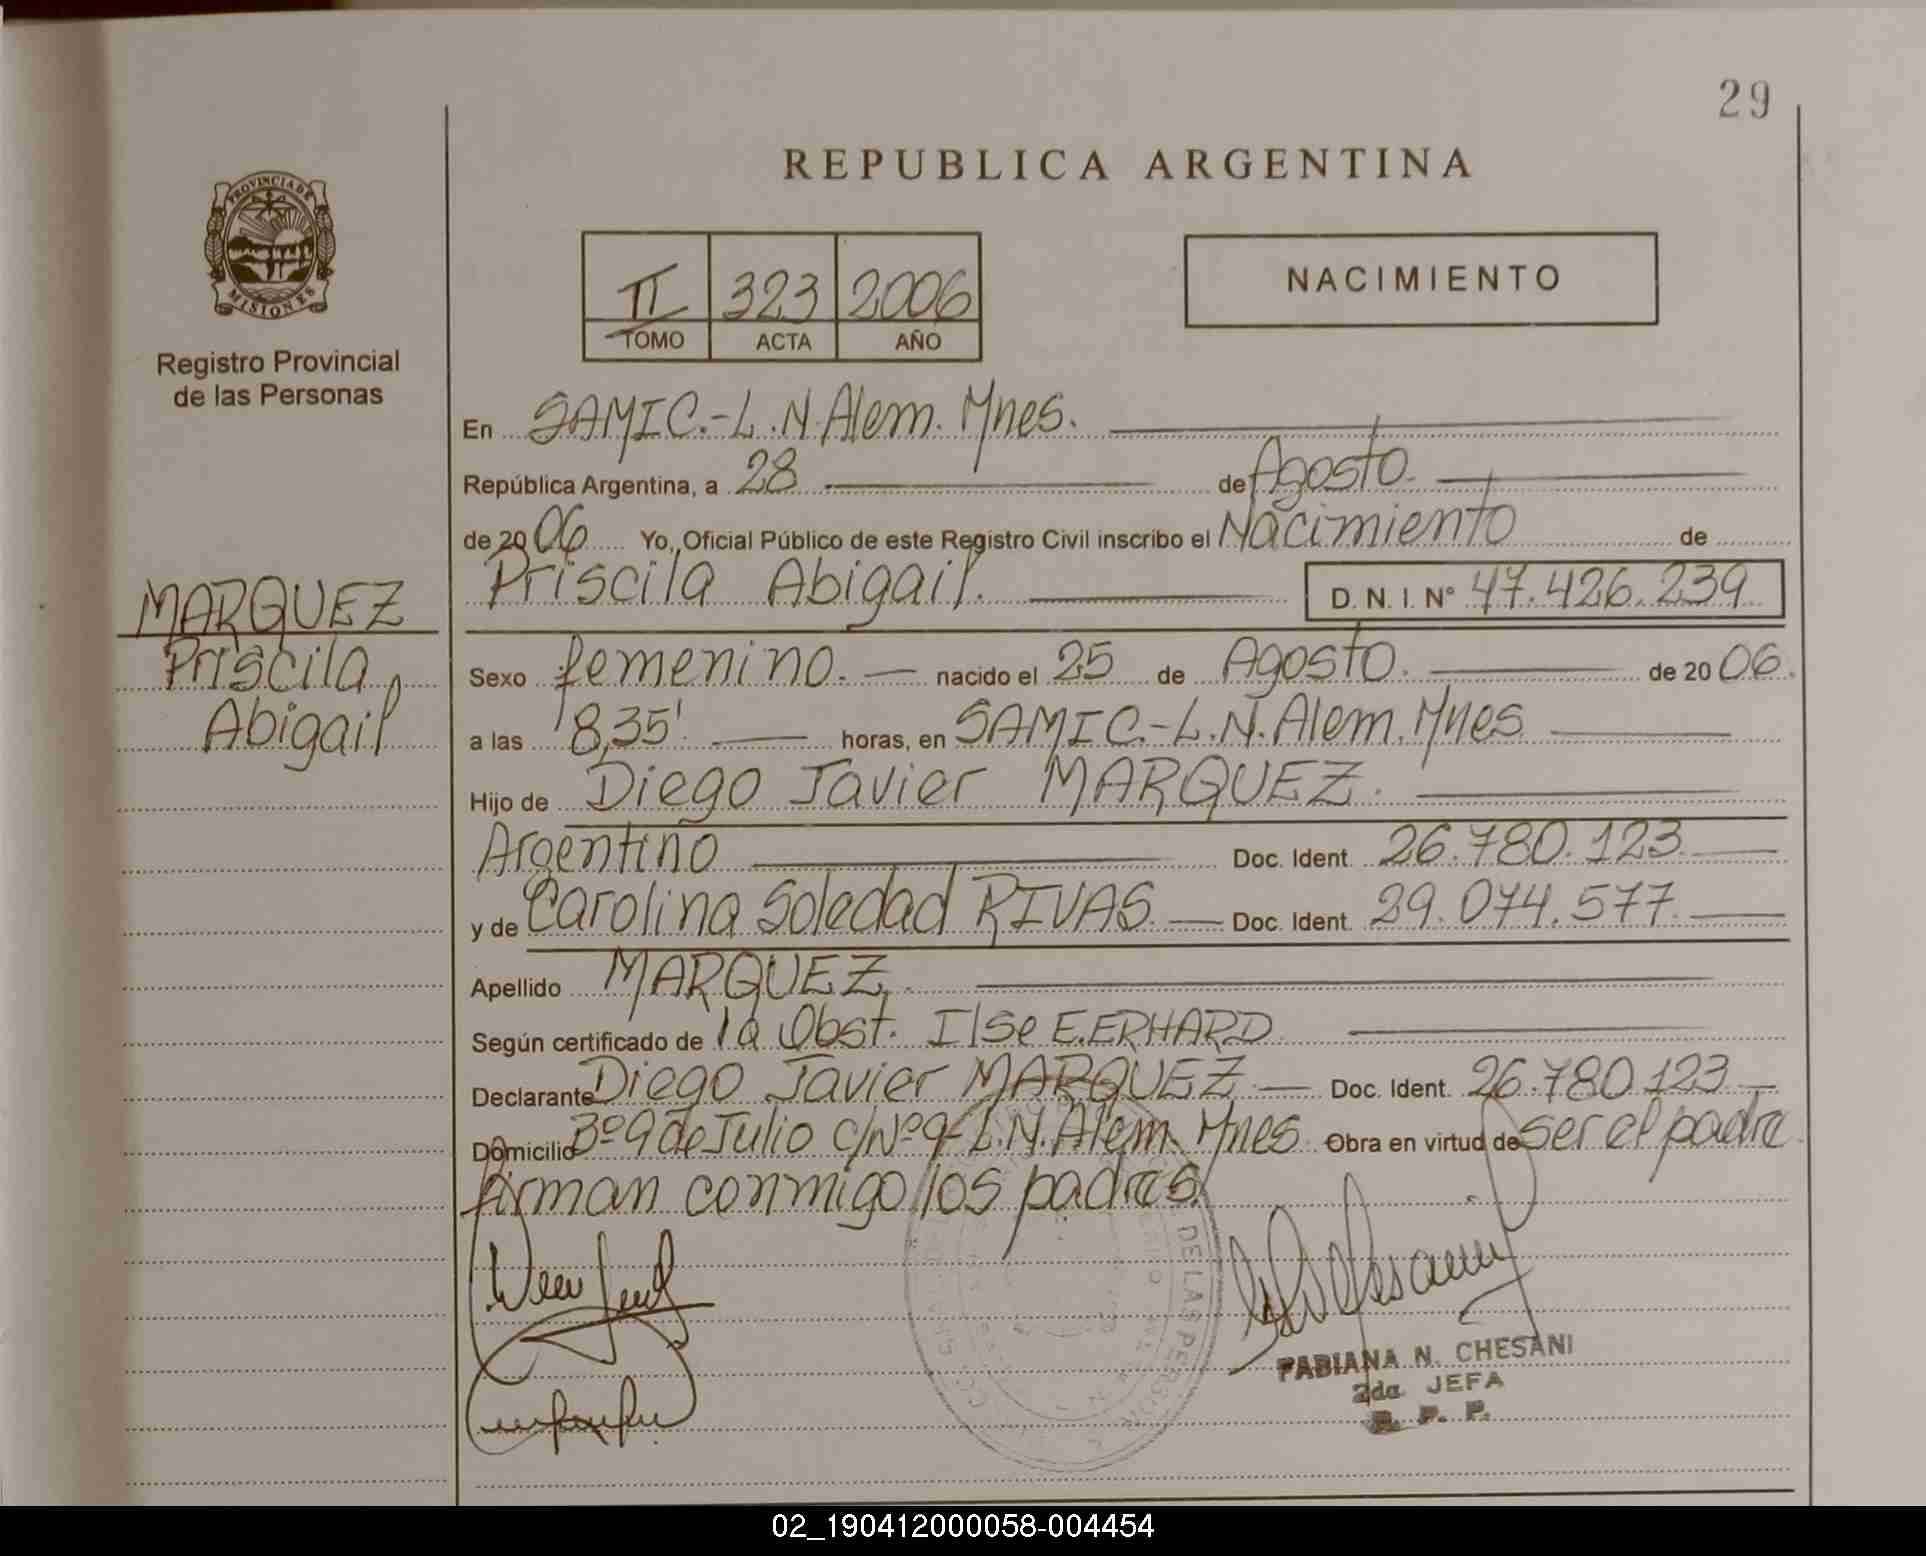 29
REPUBLICA ARGENTINA
PROVINCIA DE
MISIONES
Registro Provincial
de las Personas
II 323 2006
TOMO ACTA AÑO
NACIMIENTO
En SAMIC.-L.N.Alem. Mnes.
República Argentina, a 28 de Agosto.
de 2006 Yo, Oficial Público de este Registro Civil inscribo el Nacimiento de
Priscila Abigail. D. N. I. N° 47.426.239
MARQUEZ
Priscila
Abigail
Sexo femenino. nacido el 25 de Agosto. de 2006.
a las 8,35' horas, en SAMIC.-L.N.Alem.Mnes
Hijo de Diego Javier MARQUEZ.
Argentino Doc. Ident. 26.780.123
y de Carolina Soledad RIVAS Doc. Ident. 29.074.577
Apellido MARQUEZ.
Según certificado de la Obst. Ilse E.ERHARD
Declarante Diego Javier MARQUEZ Doc. Ident. 26.780.123
Domicilio Bº 9 de Julio c/Nº 9-L.N.Alem. Mnes Obra en virtud de ser el padre
firman conmigo los padres.
DE LAS PERSONAS
FABIANA N. CHESANI
2da JEFA
R. P. P.
02_190412000058-004454